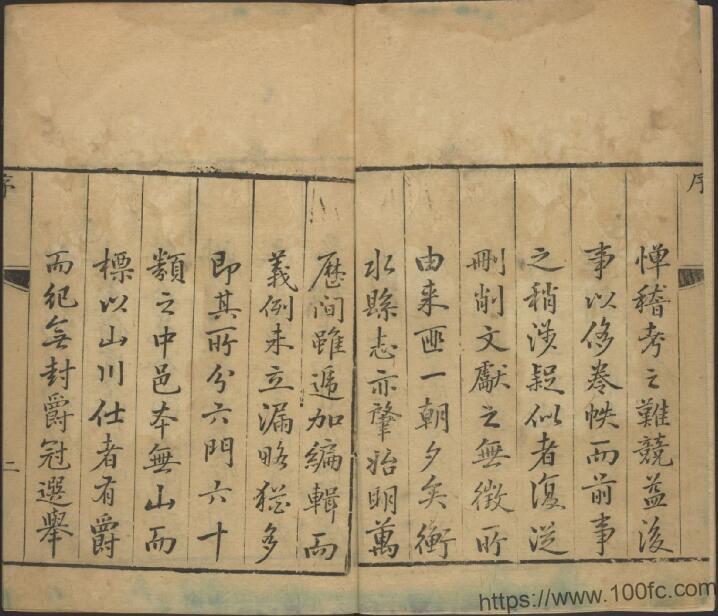 序
憚稽考之難競益後
事以侈卷帙而前事
之稍涉疑似者復從
刪削文獻之無徵所
由来匪一朝夕矣衡
水縣志亦肇始明萬
歷間雖遞加編輯而
義例未立漏略猶多
即其所分六門六十
類之中邑本無山而
標以山川仕者有爵
而紀無封爵冠選舉
序
二
https://www.100fc.com